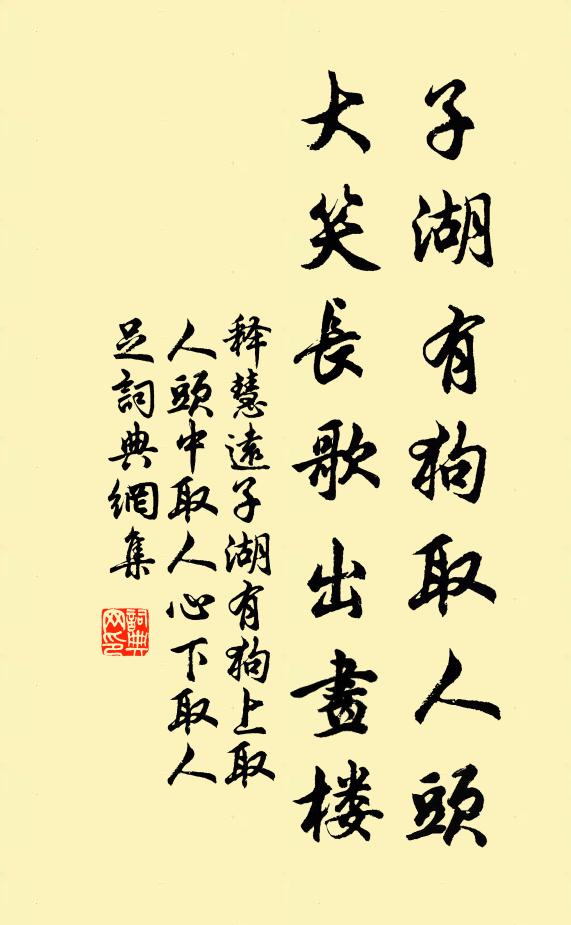 子湖有狗取人頭
大笑長歌出畫楼
释慧遠子湖有狗上取
人頭中取人心下取人
足詞典網集
詞典
网印